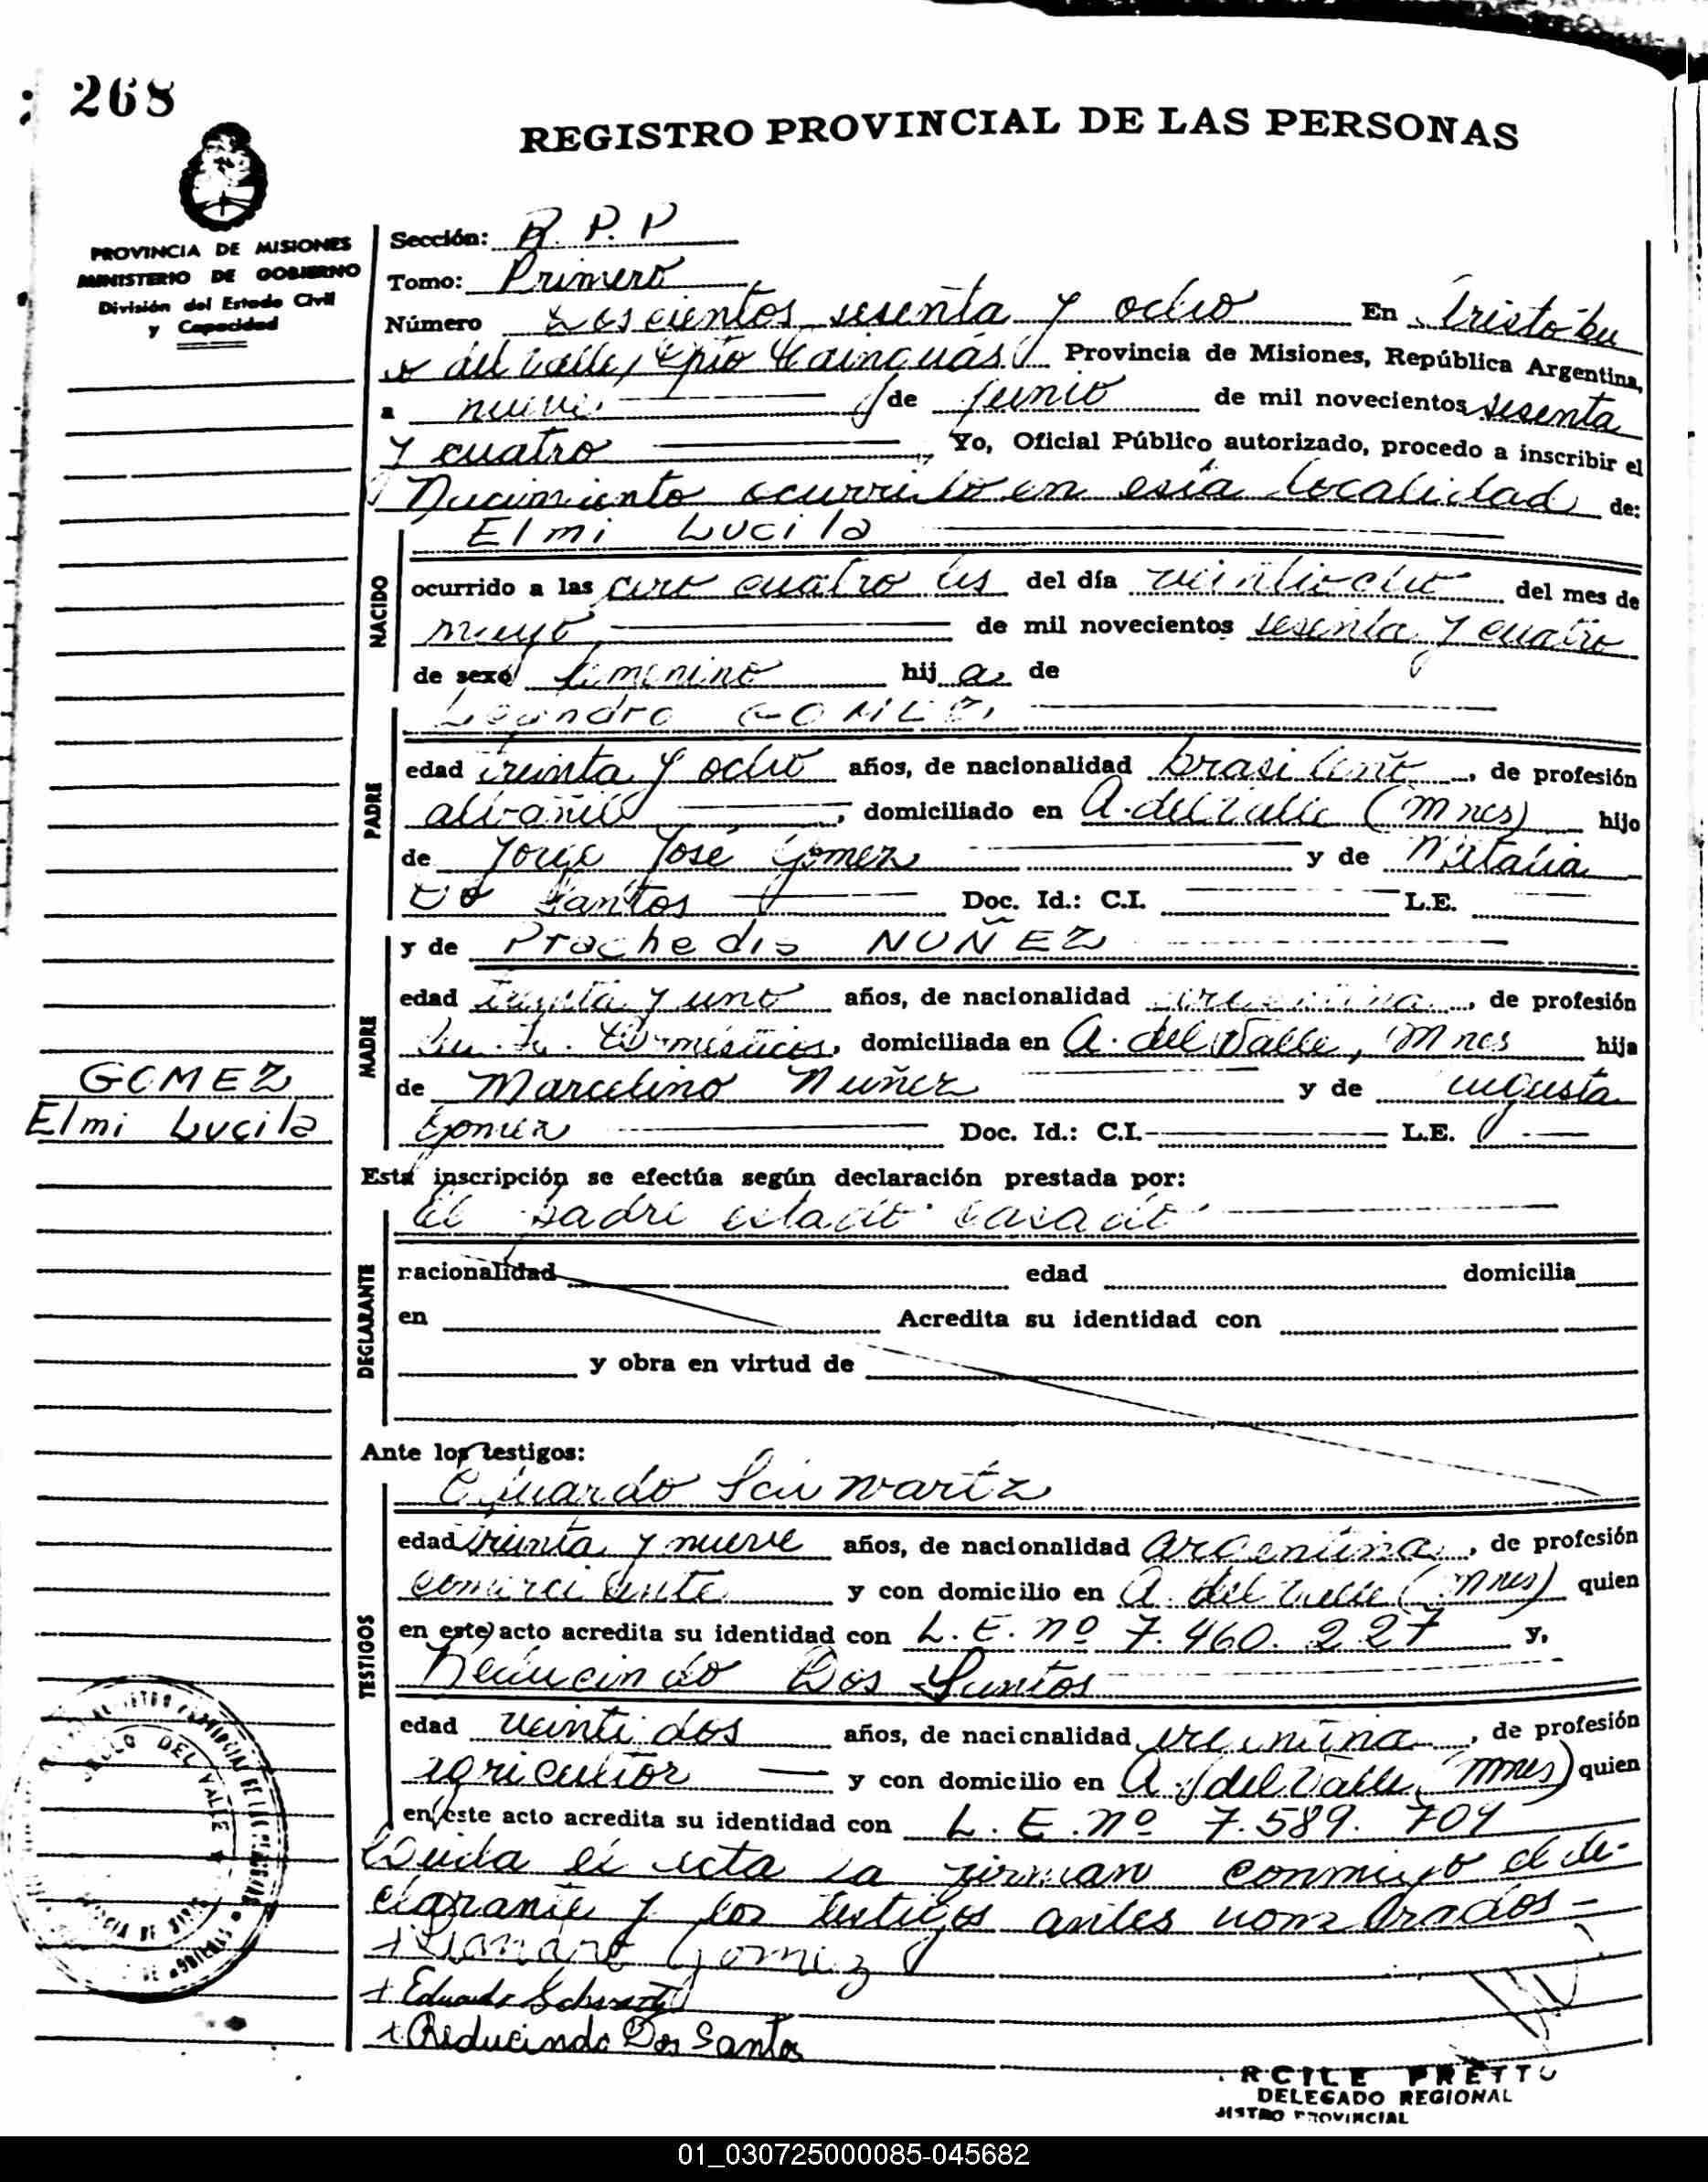 268
REGISTRO PROVINCIAL DE LAS PERSONAS
PROVINCIA DE MISIONES
MINISTERIO DE GOBIERNO
División del Estado Civil
y Capacidad
Sección: R. P. P
Tomo: Primero
Número Doscientos sesenta y ocho En Aristóbu
lo del Valle, Dpto Cainguás Provincia de Misiones, República Argentina,
a nueve de junio de mil novecientos sesenta
y cuatro Yo, Oficial Público autorizado, procedo a inscribir el
Nacimiento ocurrido en esta localidad de:
NACIDO
Elmi Lucila
ocurrido a las cero cuatro hs del día veintiocho del mes de
mayo de mil novecientos sesenta y cuatro
de sexo femenino hij a de
PADRE
Leandro GOMEZ
edad treinta y ocho años, de nacionalidad brasileño, de profesión
albañil, domiciliado en A. del Valle (Mnes) hijo
de Jorge José Gomez y de Natalia
Do Santos Doc. Id.: C.I. L.E.
MADRE
y de Prachedis NUÑEZ
edad treinta y uno años, de nacionalidad argentina, de profesión
Domésticos, domiciliada en A. del Valle, Mnes hija
de Marcelino Nuñez y de Augusta
Gomez Doc. Id.: C.I. L.E.
GOMEZ
Elmi Lucila
Esta inscripción se efectúa según declaración prestada por:
DECLARANTE
El padre estado casado
nacionalidad edad domicilia
en Acredita su identidad con
y obra en virtud de
Ante los testigos:
TESTIGOS
Eduardo Schwartz
edad treinta y nueve años, de nacionalidad argentina, de profesión
comerciante y con domicilio en A. del Valle (Mnes) quien
en este acto acredita su identidad con L. E. nº 7.460.227 y,
Reducindo Dos Santos
edad veintidos años, de nacionalidad argentina, de profesión
agricultor y con domicilio en A. del Valle (Mnes) quien
en este acto acredita su identidad con L. E. nº 7.589.704
Leida el acta la firman conmigo el de-
clarante y los testigos antes nombrados-
Leandro Gomez
Eduardo Schwartz
Reducindo Dos Santos
DEL VALLE
PRETTO
DELEGADO REGIONAL
PROVINCIAL
01_030725000085-045682